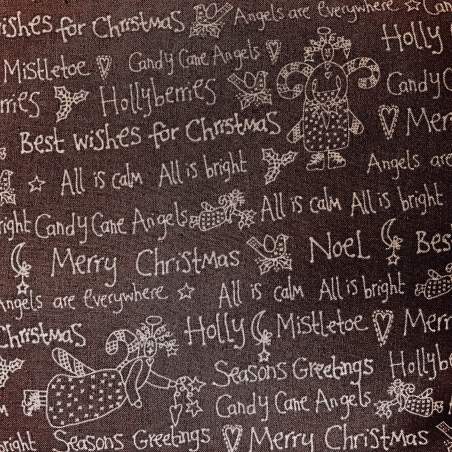 wishes for Christmas Angels are everywhere
Mistletoe Candy Cane Angels Holly
Hollyberries Candy
Best wishes for Christmas Merry
All is calm All is bright Angels are
Candy Cane Angels All is calm All is bright
Merry Christmas Noel Best
Angels are everywhere All is calm All is bright
Christmas Holly Mistletoe Merry
Seasons Greetings Hollyb
Candy Cane Angels
bright Seasons Greetings Merry Christmas